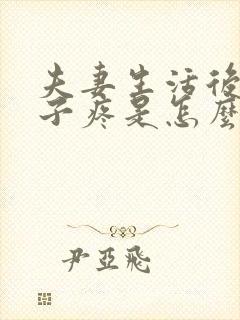 夫妻生活後
子疼是怎麼
尹亞飛